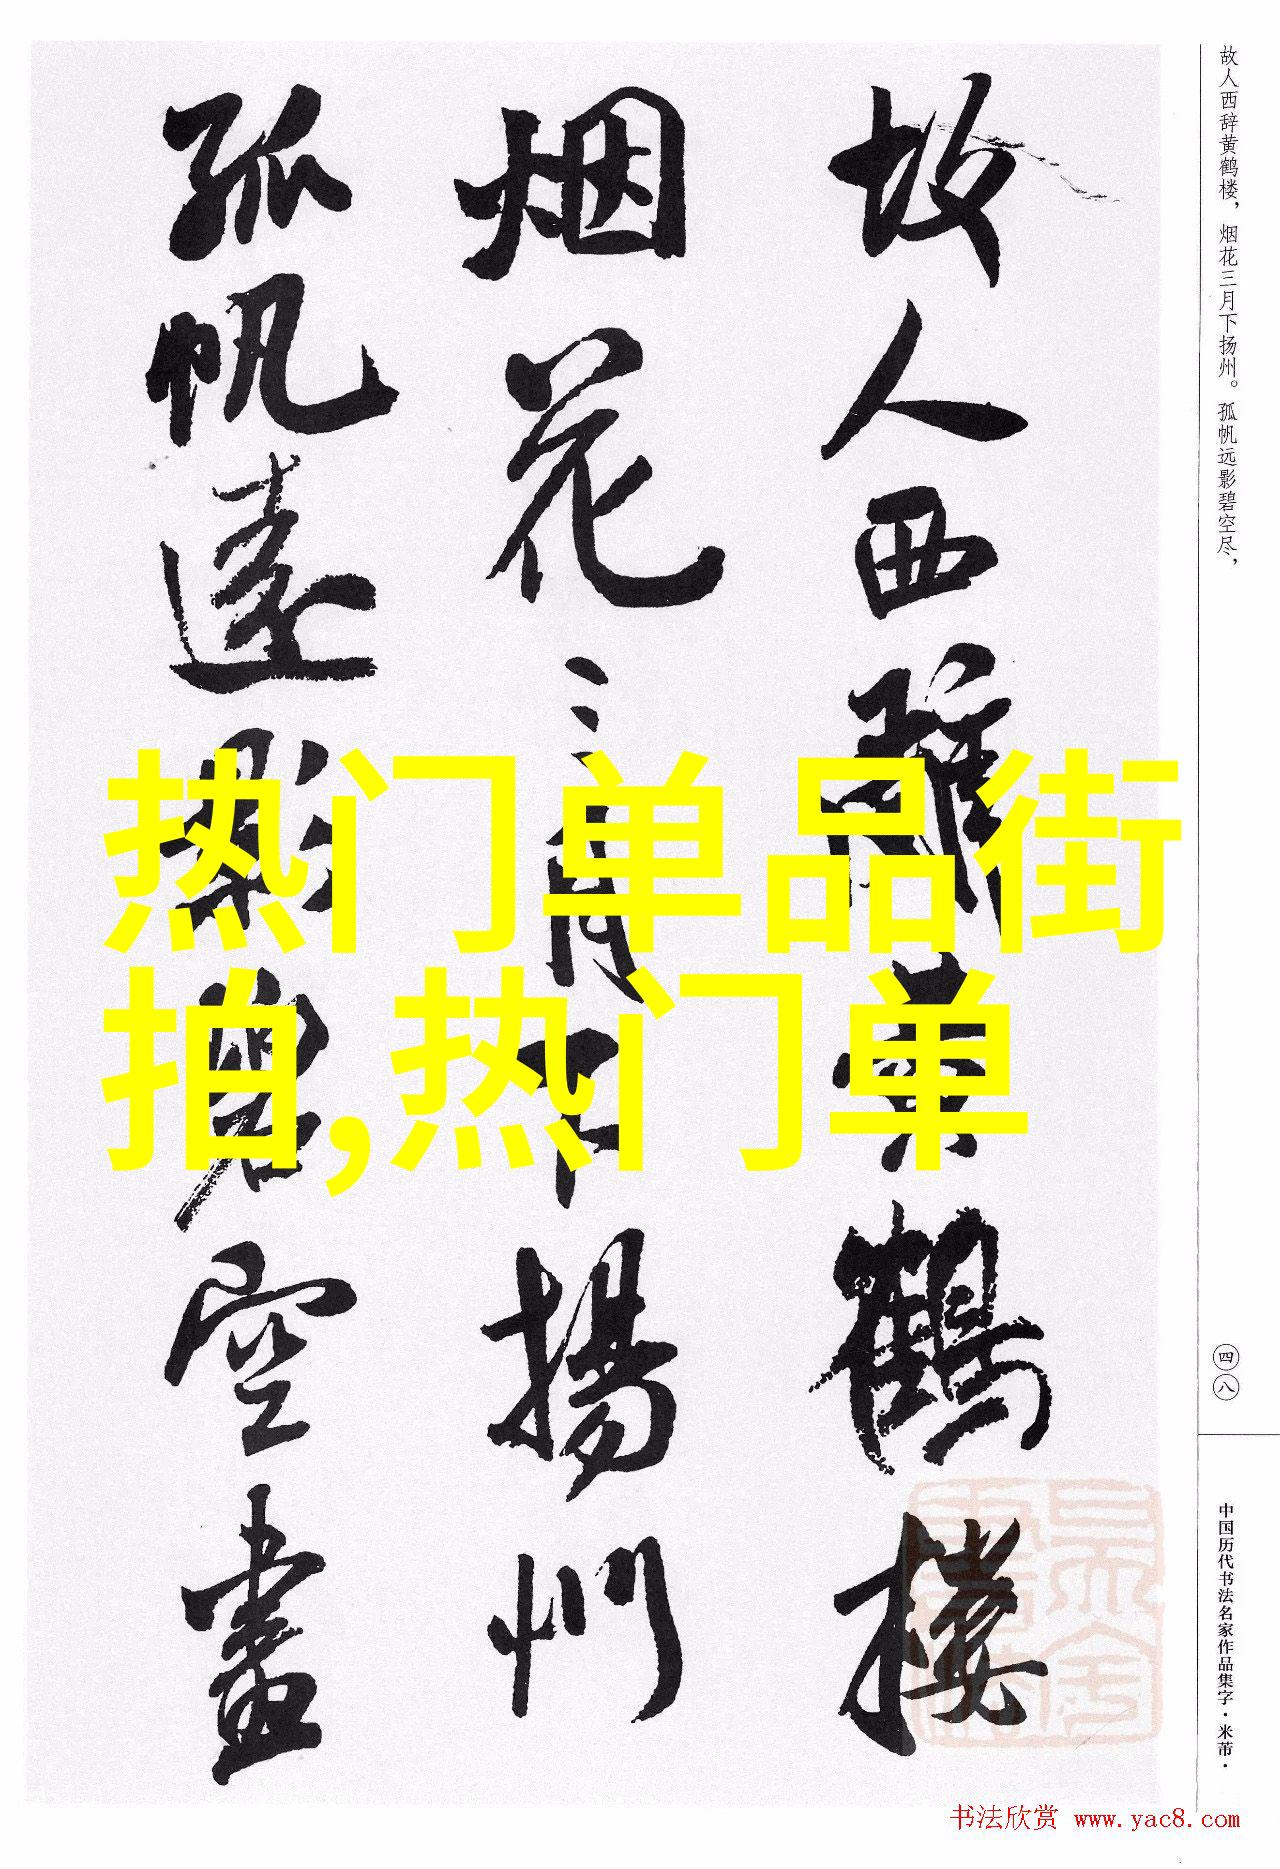 故人西辞黄鹤楼，烟花三月下扬州。孤帆远影碧空尽，
故人西辭黄鹤楼
烟花三月下揚州
孤帆遠影碧空盡
热门单品街
拍,热门单
四八
中国历代书法名家作品集字·米芾·
书法欣赏 www.yac8.com